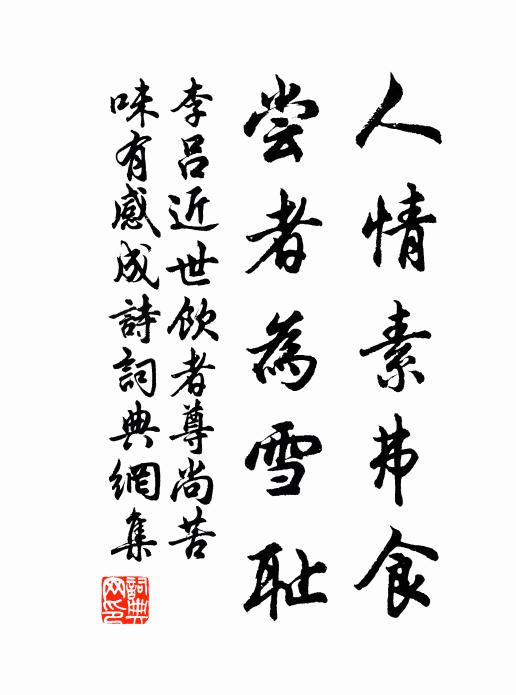 人情素弗食
尝者為雪耻
李吕近世飲者尊尚苦
味有感成詩詞典網集
詞典
网印